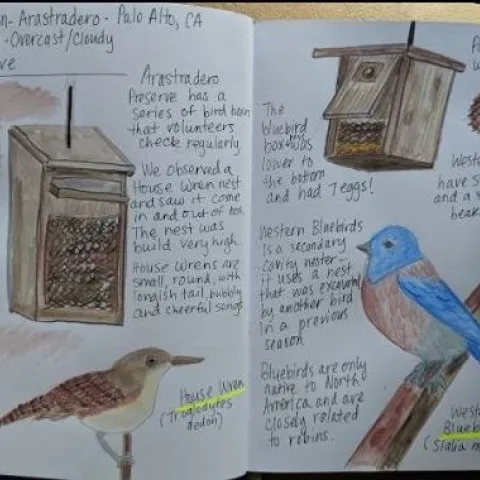 - Arastradero - Palo Alto, CA
- Overcast/Cloudy
Arastradero
Preserve has a
series of bird born
that volunteers
check regularly
We observed a
House Wren nest
and saw it come
in and out of box.
The nest was
build very high.
House Wrens are
small, round, with
longish tail, bubbly
and cheerful songs
House Wren
(Troglodytes
aedon)
The
bluebird
box was
lower to
the bottom
and had 7 eggs!
Western Bluebirds
is a secondary
cavity nester -
it uses a nest
that was excavated
by another bird
in a previous
season.
Bluebirds are only
native to North
America and are
closely related
to robins.
have s
and a s
beak
(Sialia m